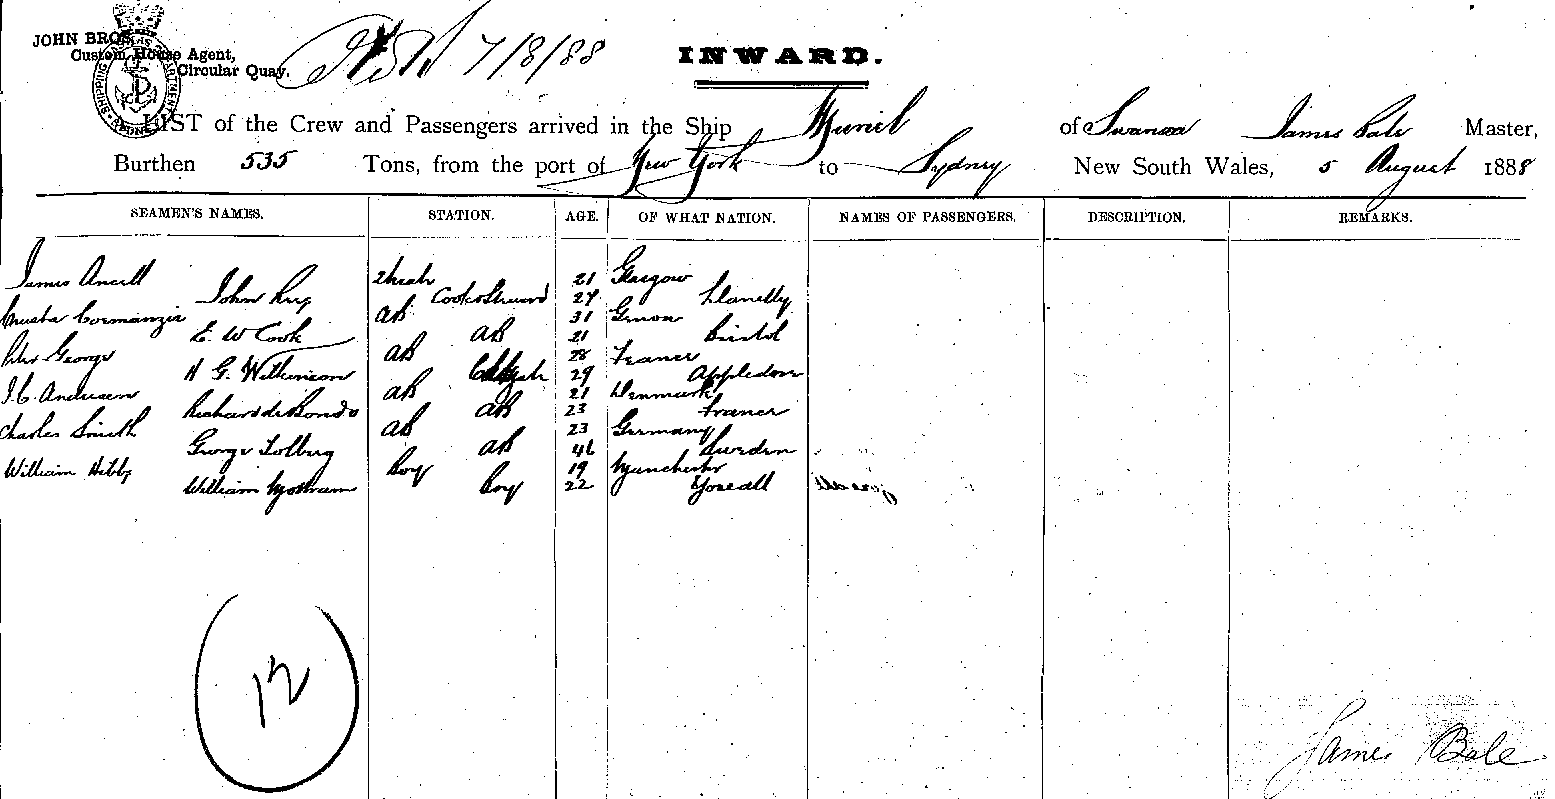 JOHN BROS
Custom House Agent,
Circular Quay.
7/8/88
INWARD.
LIST of the Crew and Passengers arrived in the Ship Muriel of Swansea James Bale Master,
Burthen 535 Tons, from the port of New York to Sydney New South Wales, 5 August 1888
SEAMEN'S NAMES. STATION. AGE. OF WHAT NATION. NAMES OF PASSENGERS. DESCRIPTION. REMARKS.
James 21 Glasgow
John Cook & Steward 24 Llanelly
AB 31 Genoa
E. W Cook AB 21 Bristol
George AB 28 France
H G. Wilkinson 29 Appledore
J. C. Andersen AB 21 Denmark
Richard de AB 23 France
Charles Smith AB 23 Germany
George Tolberg AB 46 Sweden
William Hibbs Boy 19 Manchester
William Boy 22
12
James Bale